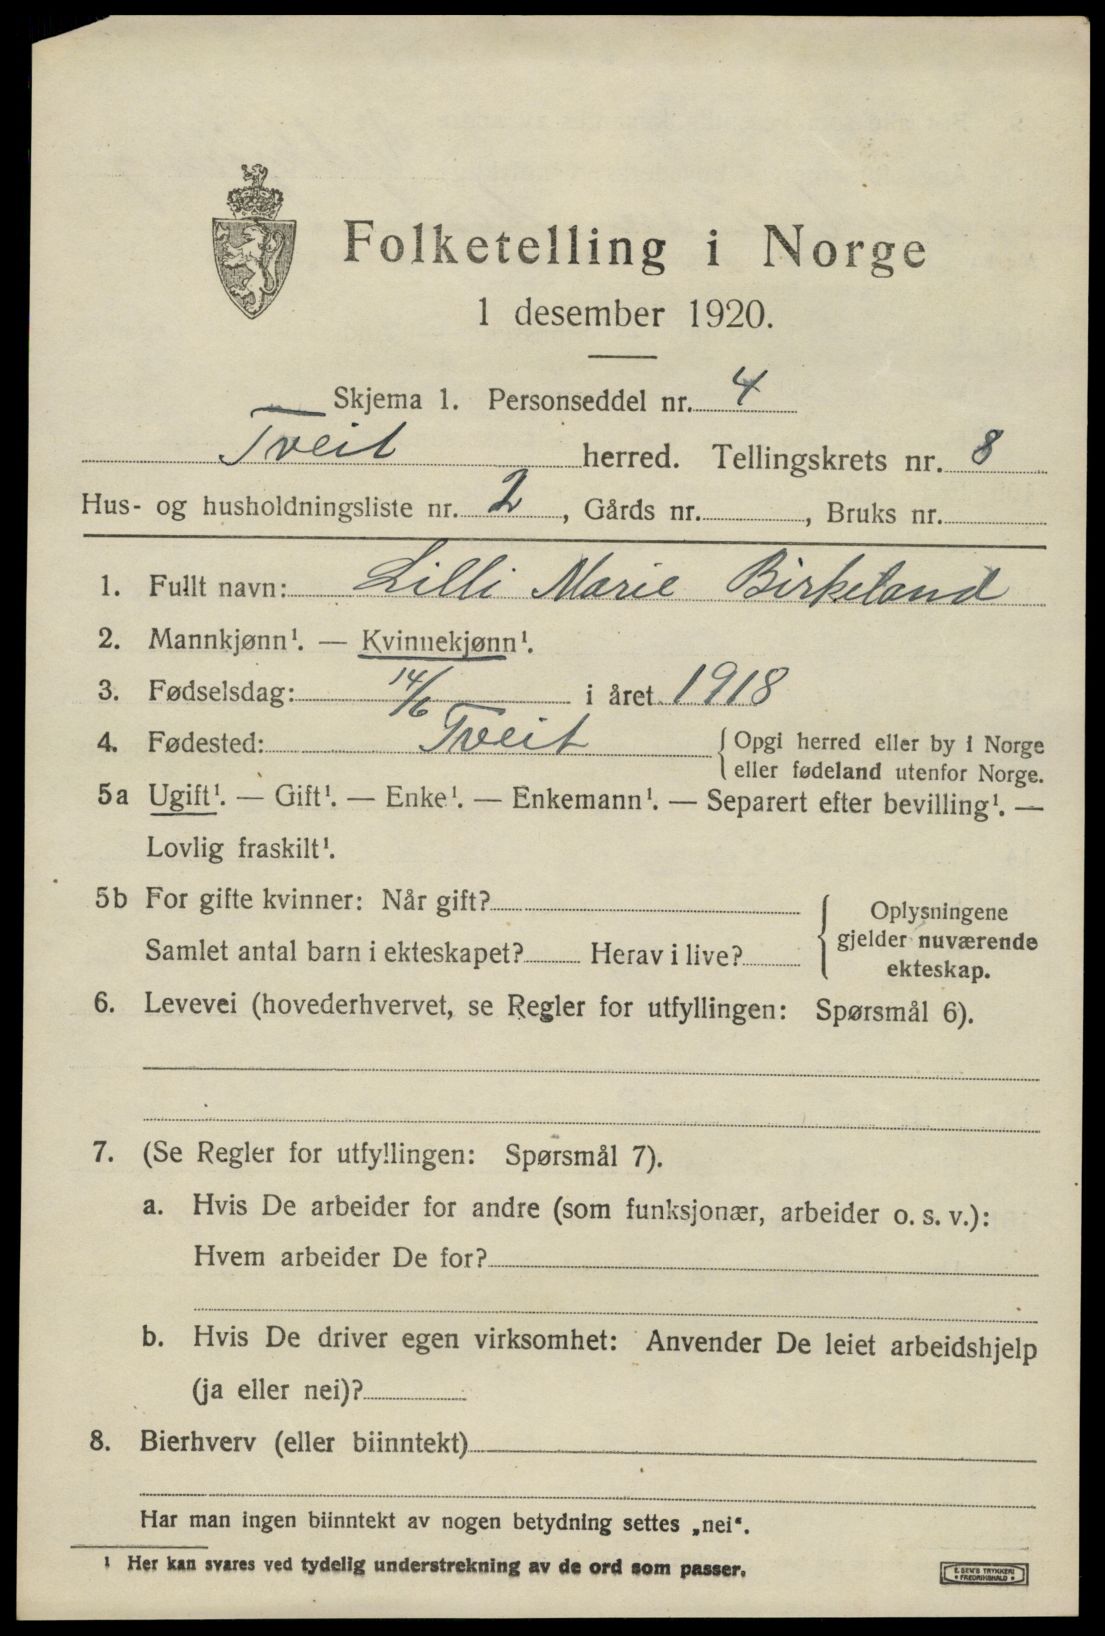 Folketelling i Norge
1 desember 1920.
Skjema 1. Personseddel nr. 4
Tveit herred. Tellingskrets nr. 8
Hus- og husholdningsliste nr. 2, Gårds nr. , Bruks nr.
1. Fullt navn: Lilli Marie Birkeland
2. Mannkjønn¹. — Kvinnekjønn¹.
3. Fødselsdag: 14/6 i året 1918
4. Fødested: Tveit { Opgi herred eller by i Norge
eller fødeland utenfor Norge.
5a Ugift¹. — Gift¹. — Enke¹. — Enkemann¹. — Separert efter bevilling¹. —
Lovlig fraskilt¹.
5b For gifte kvinner: Når gift?
Samlet antal barn i ekteskapet? Herav i live?
{ Oplysningene
gjelder nuværende
ekteskap.
6. Levevei (hovederhvervet, se Regler for utfyllingen: Spørsmål 6).
7. (Se Regler for utfyllingen: Spørsmål 7).
a. Hvis De arbeider for andre (som funksjonær, arbeider o. s. v.):
Hvem arbeider De for?
b. Hvis De driver egen virksomhet: Anvender De leiet arbeidshjelp
(ja eller nei)?
8. Bierhverv (eller biinntekt)
Har man ingen biinntekt av nogen betydning settes „nei“.
¹ Her kan svares ved tydelig understrekning av de ord som passer.
E. SEM'S TRYKKERI
• FREDRIKSHALD •